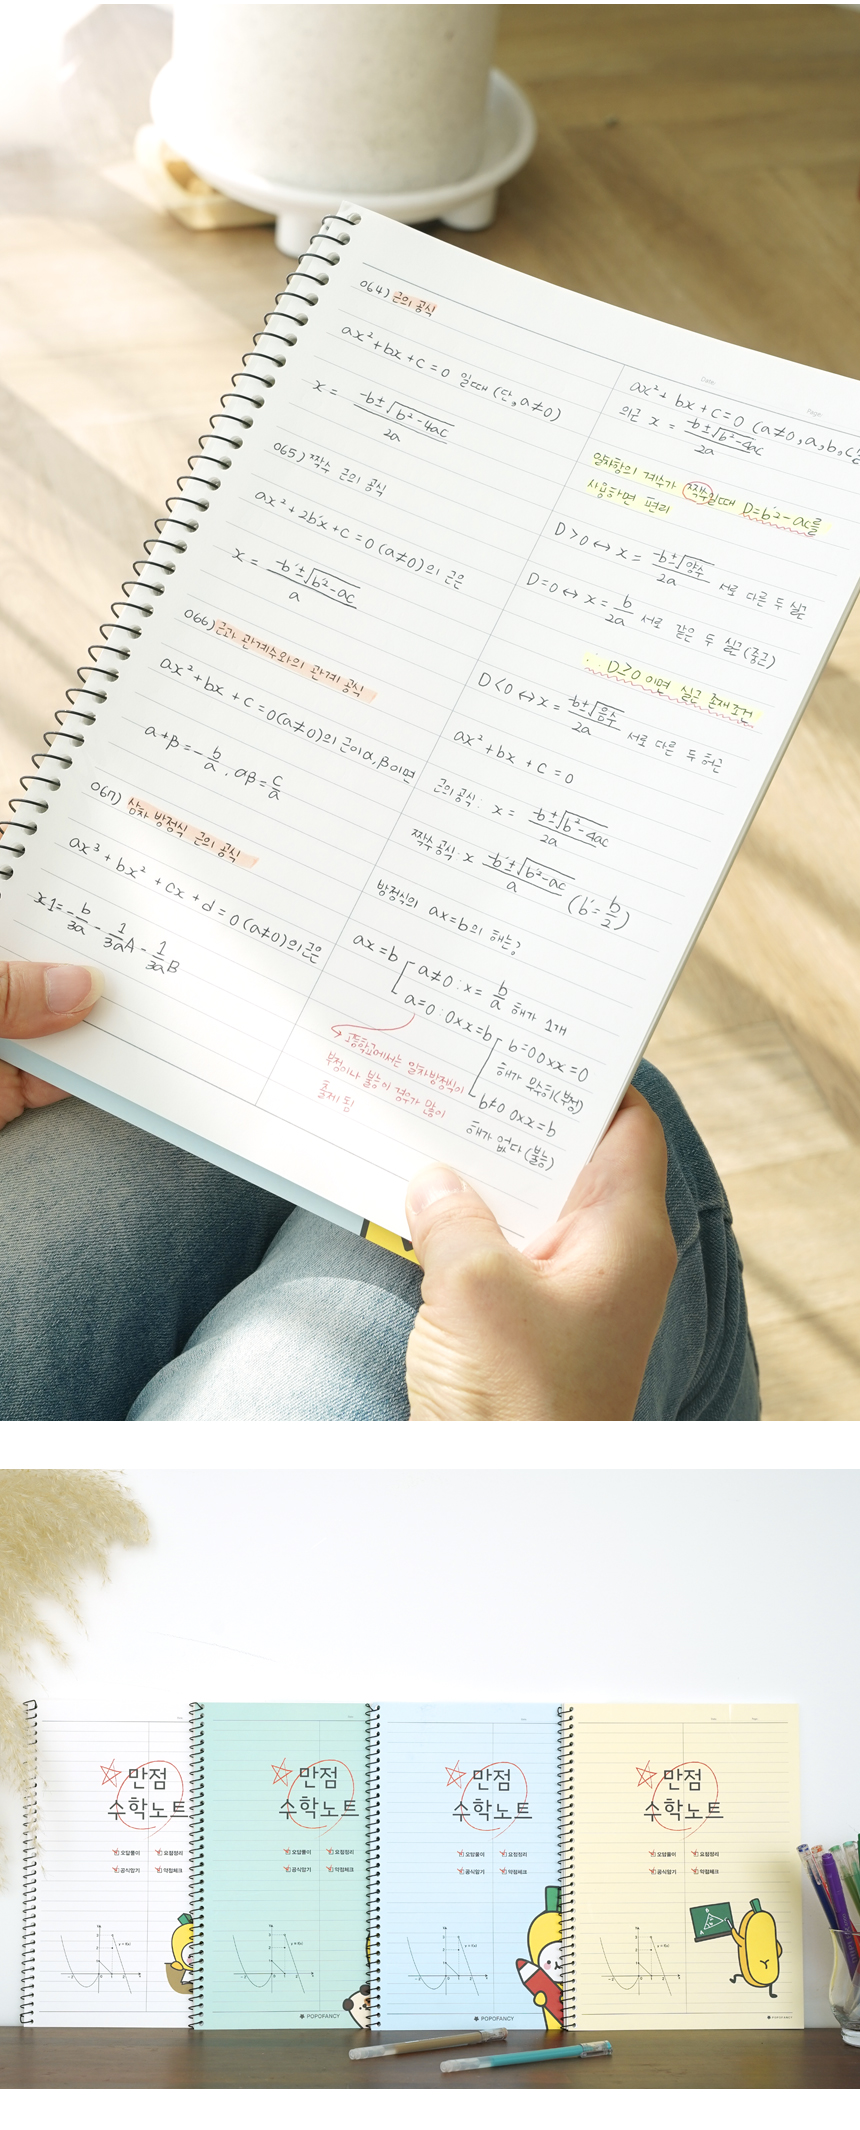 064) 근의 공식
ax²+bx+c=0 일때 (단, a≠0)
x = -b±√b²-4ac / 2a
065) 짝수 근의 공식
ax²+2b'x+c=0 (a≠0)의 근은
x = -b'±√b'²-ac / a
066) 근과 관계수와의 관계 공식
ax²+bx+c=0(a≠0)의 근이 α,β이면
α+β=-b/a , αβ=c/a
067) 삼차 방정식 근의 공식
ax³+bx²+cx+d=0 (a≠0)의 근은
x1=-b/3a-1/3aA-1/3aB
Date.
Page.
ax²+bx+c=0 (a≠0,a,b,c
의근 x = -b±√b²-4ac / 2a
일차항의 계수가 짝수일때 D=b'²-ac를
사용하면 편리
D>0 ↔ x = -b±√양수 / 2a 서로 다른 두 실근
D=0 ↔ x = b/2a 서로 같은 두 실근(중근)
∴ D≥0 이면 실근 존재조건
D<0 ↔ x = b±√음수 / 2a 서로 다른 두 허근
ax²+bx+c=0
근의공식: x = -b±√b²-4ac / 2a
짝수공식: x -b'±√b'²-ac / a (b'=b/2)
방정식의 ax=b의 해는?
ax=b
a≠0 : x= b/a 해가 1개
a=0 : 0xx=b
b=0 0xx=0
해가 무수히(부정)
b≠0 0xx=b
해가 없다(불능)
고등학교에서는 일차방정식이
부정이나 불능이 경우가 많이
출제 됨
만점
수학노트
오답풀이 요점정리
공식암기 약점체크
만점
수학노트
오답풀이 요점정리
공식암기 약점체크
y=f(x)
POPOFANCY
만점
수학노트
오답풀이 요점정리
공식암기 약점체크
y=f(x)
POPOFANCY
만점
수학노트
오답풀이 요점정리
공식암기 약점체크
y=f(x)
POPOFANCY